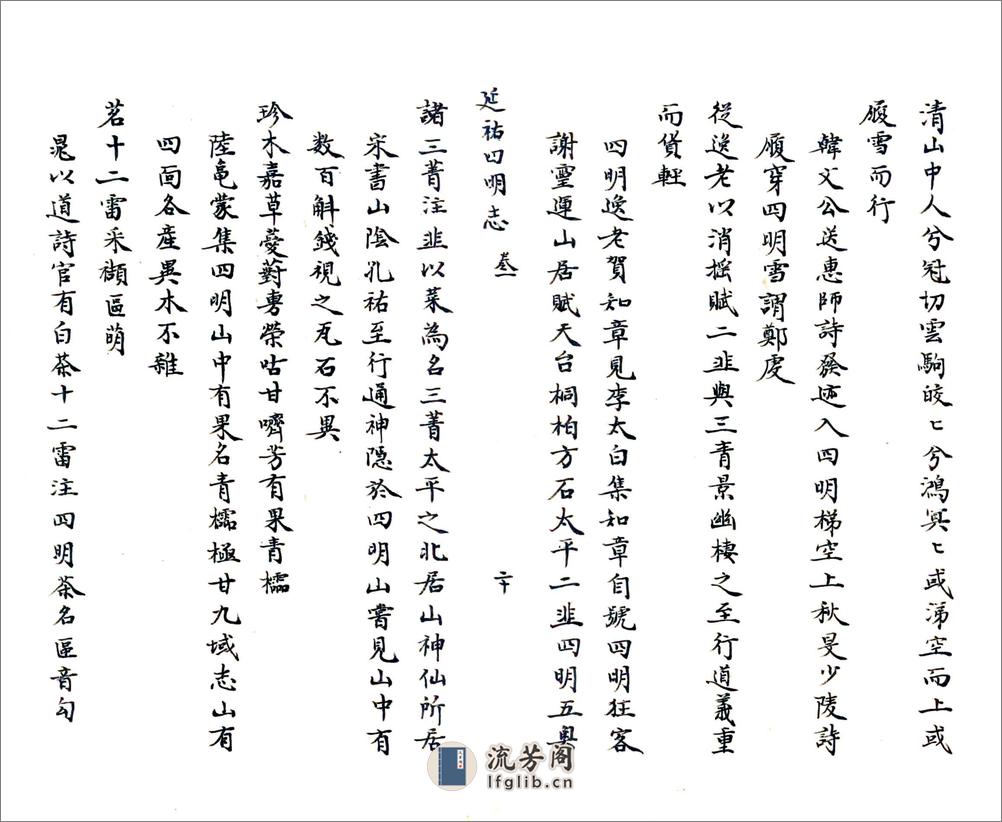 清山中人兮冠切雲駒皎〻兮鴻冥〻或涕空而上或
履雪而行
韓文公送惠師詩發迹入四明梯空上秋旻少陵詩
履穿四明雪謂鄭虔
從逸老以消摇賦二韭與三青景幽棲之至行道義重
而貨輕
四明逸老賀知章見李太白集知章自號四明狂客
謝靈運山居賦天台桐柏方石太平二韭四明五奥
延祐四明志 卷一 二十
諸三菁注韭以菜為名三菁太平之北居山神仙所居
宋書山陰孔祐至行通神隠於四明山嘗見山中有
数百斛錢視之瓦石不異
珍木嘉草薆薱旉榮咕甘嚌芳有果青櫺
陸龜蒙集四明山中有果名青櫺極甘九域志山有
四面各産異木不雜
茗十二雷采擷區萌
晁以道詩官有白茶十二雷注四明茶名區音勾
流芳阁
lfglib.cn